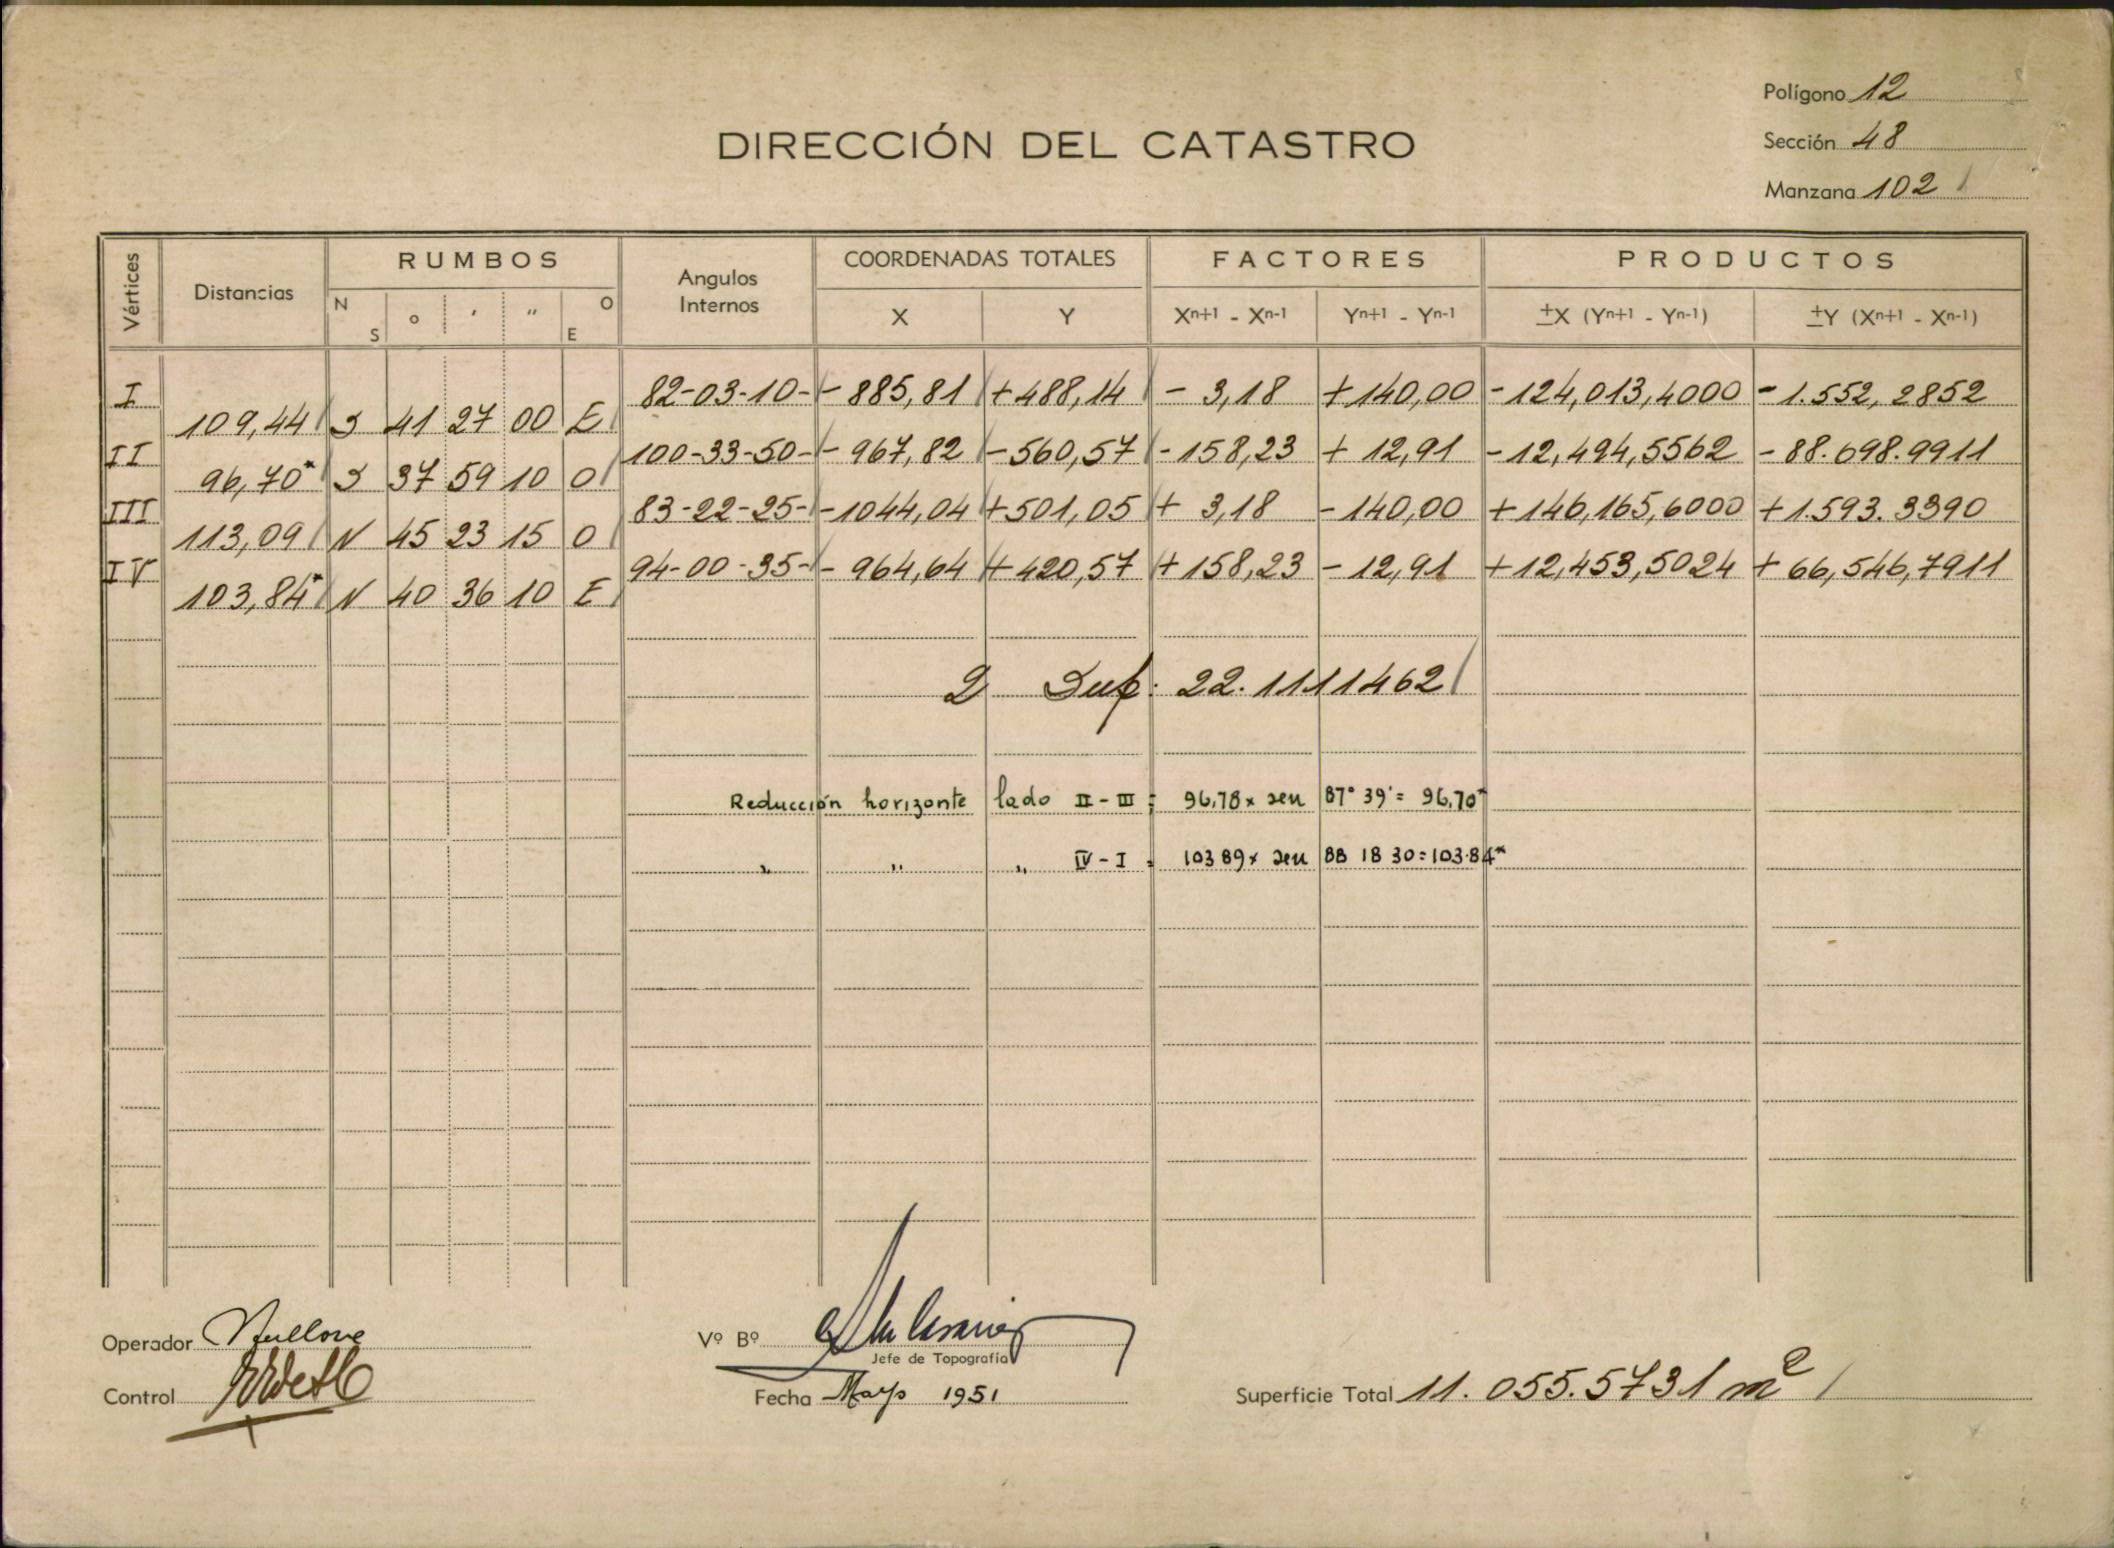 Polígono 12
DIRECCIÓN DEL CATASTRO
Sección 48
Manzana 102
Vértices Distancias RUMBOS Angulos Internos COORDENADAS TOTALES FACTORES PRODUCTOS
N S o ' " O E X Y Xn+1 - Xn-1 Yn+1 - Yn-1 ±X (Yn+1 - Yn-1) ±Y (Xn+1 - Xn-1)
I 82-03-10- - 885,81 + 488,14 - 3,18 + 140,00 - 124,013,4000 - 1.552,2852
109,44 S 41 27 00 E
II 100-33-50- - 967,82 - 560,57 - 158,23 + 12,91 - 12,494,5562 - 88.698.9911
96,70* S 37 59 10 O
III 83-22-25- - 1044,04 + 501,05 + 3,18 - 140,00 + 146,165,6000 + 1.593.3390
113,09 N 45 23 15 O
IV 94-00-35- - 964,64 + 420,57 + 158,23 - 12,91 + 12,453,5024 + 66,546,7911
103,84* N 40 36 10 E
2 Sup: 22.1111462
Reducción horizonte lado II - III : 96,78 x sen 87° 39' = 96,70*
" " " IV - I : 103 89 x sen 88 18 30 = 103.84*
Operador
Vº Bº
Jefe de Topografía
Control
Fecha Mayo 1951
Superficie Total 11.055.5731 m2